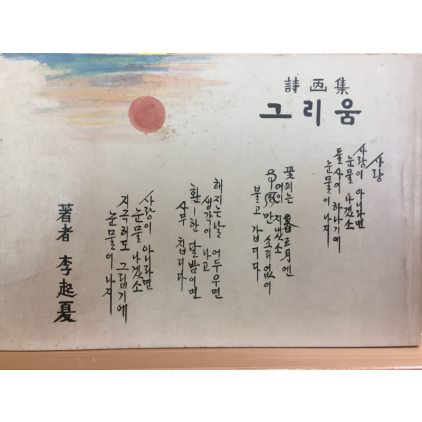 詩画集
그리움
사랑
사랑이 아니라면
눈물 나겠소
둘 사이 하나기에
눈물이 나지
꽃피는
어이 지냈소
만 소리없이
불고 갑디다
해지는 날 어두우면
생각이 나고
환-한 달밤이면
사무칩디다
사랑이 아니라면
눈물 나겠소
지극히도 그립기에
눈물이 나지
著者 李起夏